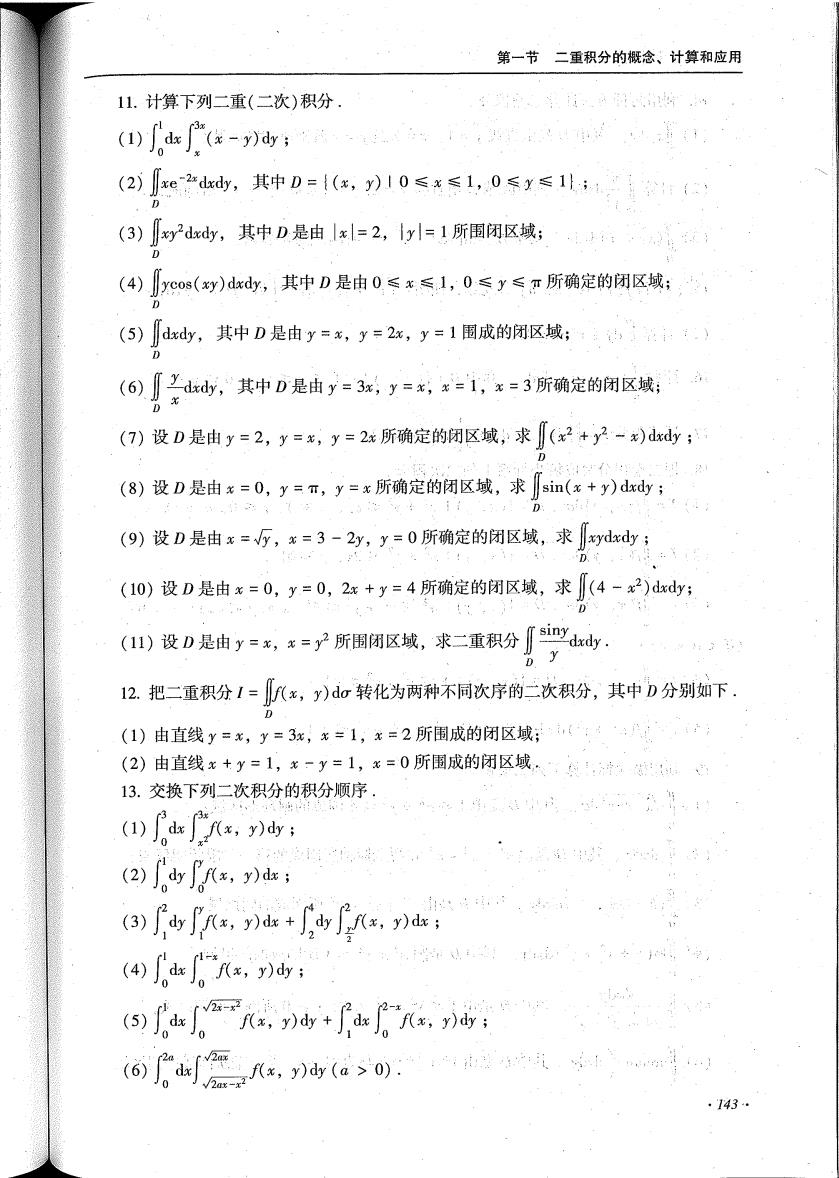 第一节 二重积分的概念、计算和应用
11. 计算下列二重(二次)积分.
(1) ∫₀¹dx∫ₓ³ˣ(x - y)dy;
(2) ∬_D xe⁻²ˣdxdy, 其中 D = {(x, y) | 0 ≤ x ≤ 1, 0 ≤ y ≤ 1};
(3) ∬_D xy²dxdy, 其中 D 是由 |x| = 2, |y| = 1 所围闭区域;
(4) ∬_D ycos(xy)dxdy, 其中 D 是由 0 ≤ x ≤ 1, 0 ≤ y ≤ π 所确定的闭区域;
(5) ∬_D dxdy, 其中 D 是由 y = x, y = 2x, y = 1 围成的闭区域;
(6) ∬_D y/x dxdy, 其中 D 是由 y = 3x, y = x, x = 1, x = 3 所确定的闭区域;
(7) 设 D 是由 y = 2, y = x, y = 2x 所确定的闭区域, 求 ∬_D (x² + y² - x)dxdy;
(8) 设 D 是由 x = 0, y = π, y = x 所确定的闭区域, 求 ∬_D sin(x + y)dxdy;
(9) 设 D 是由 x = √y, x = 3 - 2y, y = 0 所确定的闭区域, 求 ∬_D xydxdy;
(10) 设 D 是由 x = 0, y = 0, 2x + y = 4 所确定的闭区域, 求 ∬_D (4 - x²)dxdy;
(11) 设 D 是由 y = x, x = y² 所围闭区域, 求二重积分 ∬_D siny/y dxdy.
12. 把二重积分 I = ∬_D f(x, y)dσ 转化为两种不同次序的二次积分, 其中 D 分别如下.
(1) 由直线 y = x, y = 3x, x = 1, x = 2 所围成的闭区域;
(2) 由直线 x + y = 1, x - y = 1, x = 0 所围成的闭区域.
13. 交换下列二次积分的积分顺序.
(1) ∫₀³dx∫_{x²}^{3x} f(x, y)dy;
(2) ∫₀¹dy∫₀^y f(x, y)dx;
(3) ∫₁²dy∫₁^y f(x, y)dx + ∫₂⁴dy∫_{y/2}^2 f(x, y)dx;
(4) ∫₀¹dx∫₀^{1-x} f(x, y)dy;
(5) ∫₀¹dx∫₀^{√(2x-x²)} f(x, y)dy + ∫₁²dx∫₀^{2-x} f(x, y)dy;
(6) ∫₀^{2a}dx∫_{√(2ax-x²)}^{√(2ax)} f(x, y)dy (a > 0).
· 143 ·